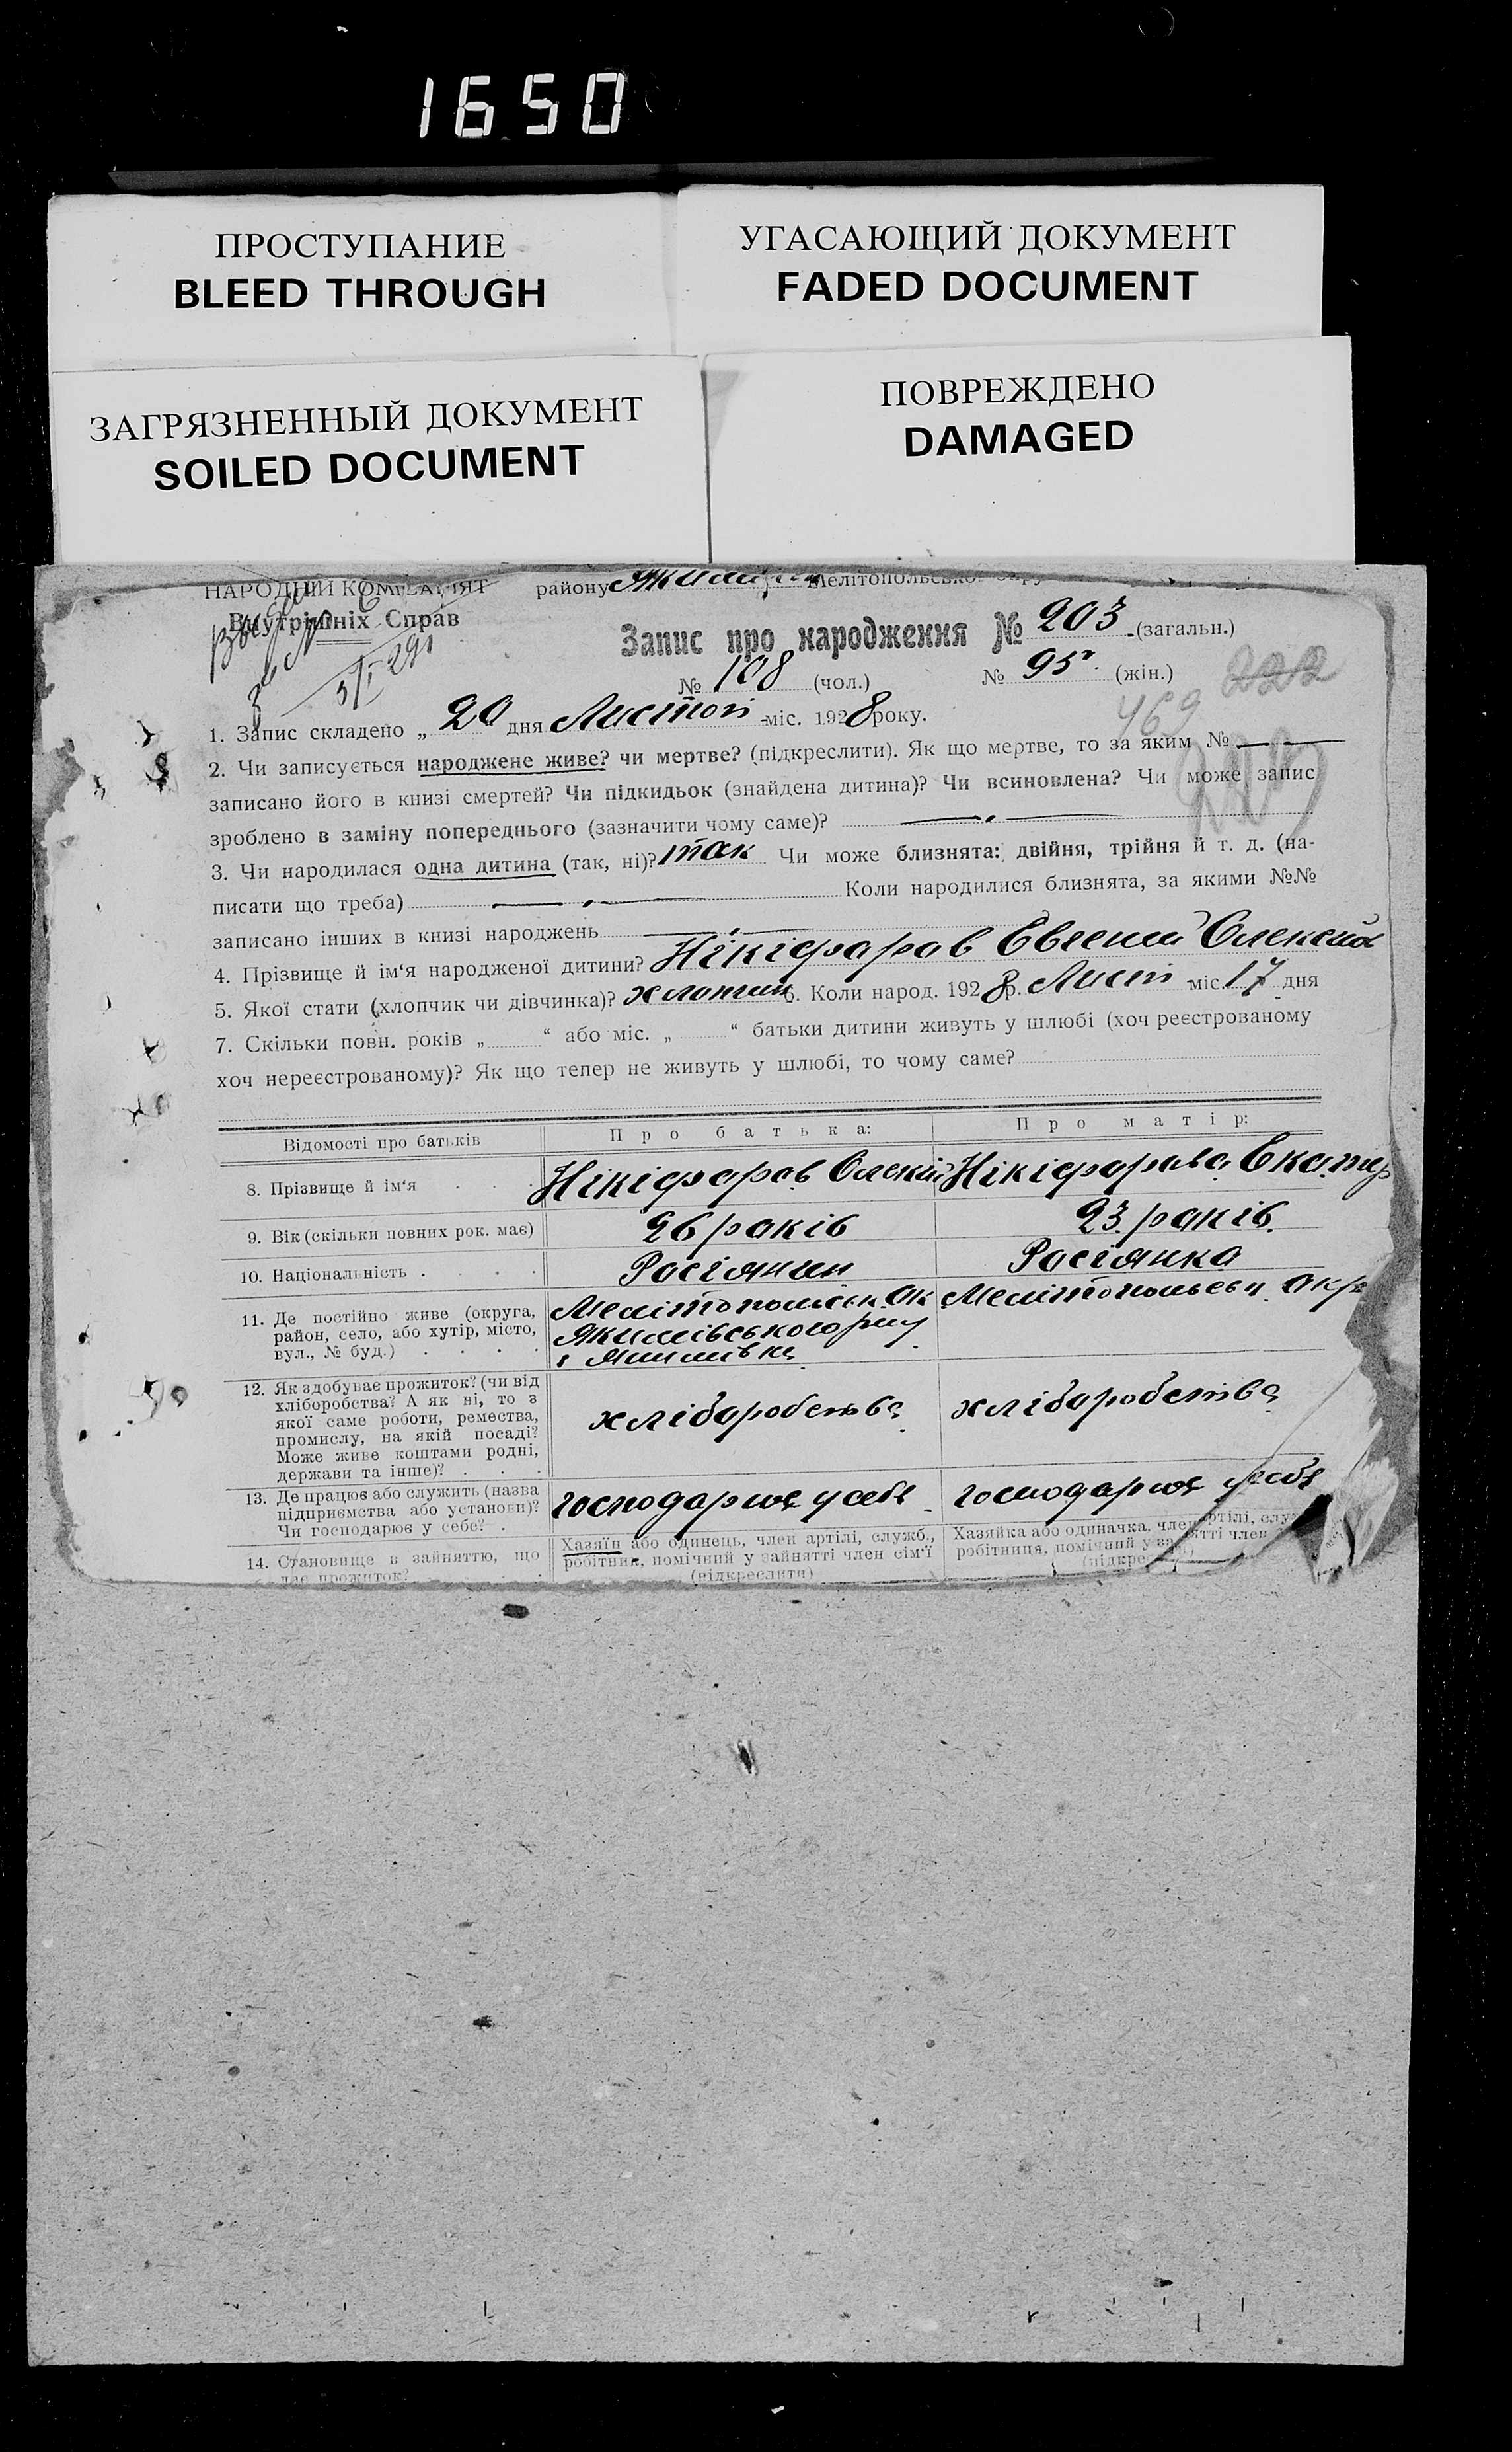 1650
ПРОСТУПАНИЕ
BLEED THROUGH
УГАСАЮЩИЙ ДОКУМЕНТ
FADED DOCUMENT
ЗАГРЯЗНЕННЫЙ ДОКУМЕНТ
SOILED DOCUMENT
ПОВРЕЖДЕНО
DAMAGED
НАРОДНИЙ КОМІСАРІЯТ
Внутрішніх Справ
району
Запис про народження № 203 (загальн.)
№ 108 (чол.) № 95 (жін.)
222
469
1. Запис складено „ 20 дня Листоп міс. 1928 року.
2. Чи записується народжене живе? чи мертве? (підкреслити). Як що мертве, то за яким №
записано його в книзі смертей? Чи підкидьок (знайдена дитина)? Чи всиновлена? Чи може запис
зроблено в заміну попереднього (зазначити чому саме)?
3. Чи народилася одна дитина (так, ні)? так Чи може близнята: двійня, трійня й т. д. (на-
писати що треба) Коли народилися близнята, за якими №№
записано інших в книзі народжень
4. Прізвище й ім‘я народженої дитини? Нікіфаров Евгений
5. Якої стати (хлопчик чи дівчинка)? хлопчик 6. Коли народ. 1928 р. Лист міс. 17 дня
7. Скільки повн. років „ “ або міс. „ “ батьки дитини живуть у шлюбі (хоч реєстрованому
хоч нереєстрованому)? Як що тепер не живуть у шлюбі, то чому саме?
Відомості про батьків
Про батька:
Про матір:
8. Прізвище й ім‘я
Нікіфаров Олексій
Нікіфарова Екатер
9. Вік (скільки повних рок. має)
26 років
23 років
10. Національність
Росіянин
Росіянка
11. Де постійно живе (округа,
район, село, або хутір, місто,
вул., № буд.)
Мелітопольськ. ок
Якимівського р-ну
Якимівка
Мелітопольськ. окр
12. Як здобуває прожиток? (чи від
хліборобства? А як ні, то з
якої саме роботи, ремества,
промислу, на якій посаді?
Може живе коштами родні,
держави та інше)?
хліборобства
хліборобства
13. Де працює або служить (назва
підприємства або установи)?
Чи господарює у себе?
господарює у себе
господарює у себе
14. Становище в зайняттю, що
дає прожиток?
Хазяїн або одинець, член артілі, служб.,
робітник, помічний у зайнятті член сім‘ї
(підкреслити)
Хазяйка або одиначка, член артілі,
робітниця, помічний у зайнятті член